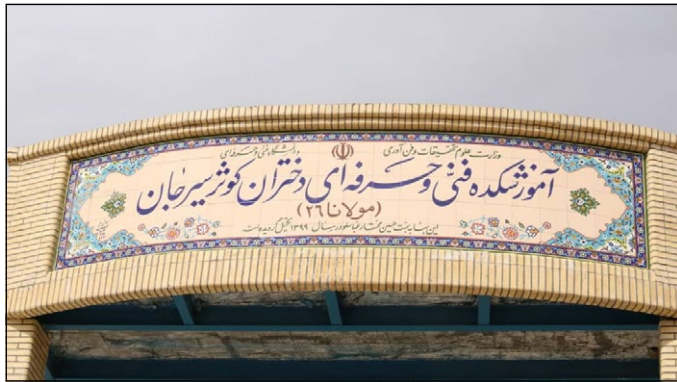 وزارت علوم تحقیقات و فن آوری
دانشگاه فنی و حرفه ای
آموزشکده فنی و حرفه ای دختران کوثر سیرجان
(مولانا ۲۶)
این بنا به همت حسین مختار در سال ۱۳۹۹ تکمیل گردیده است